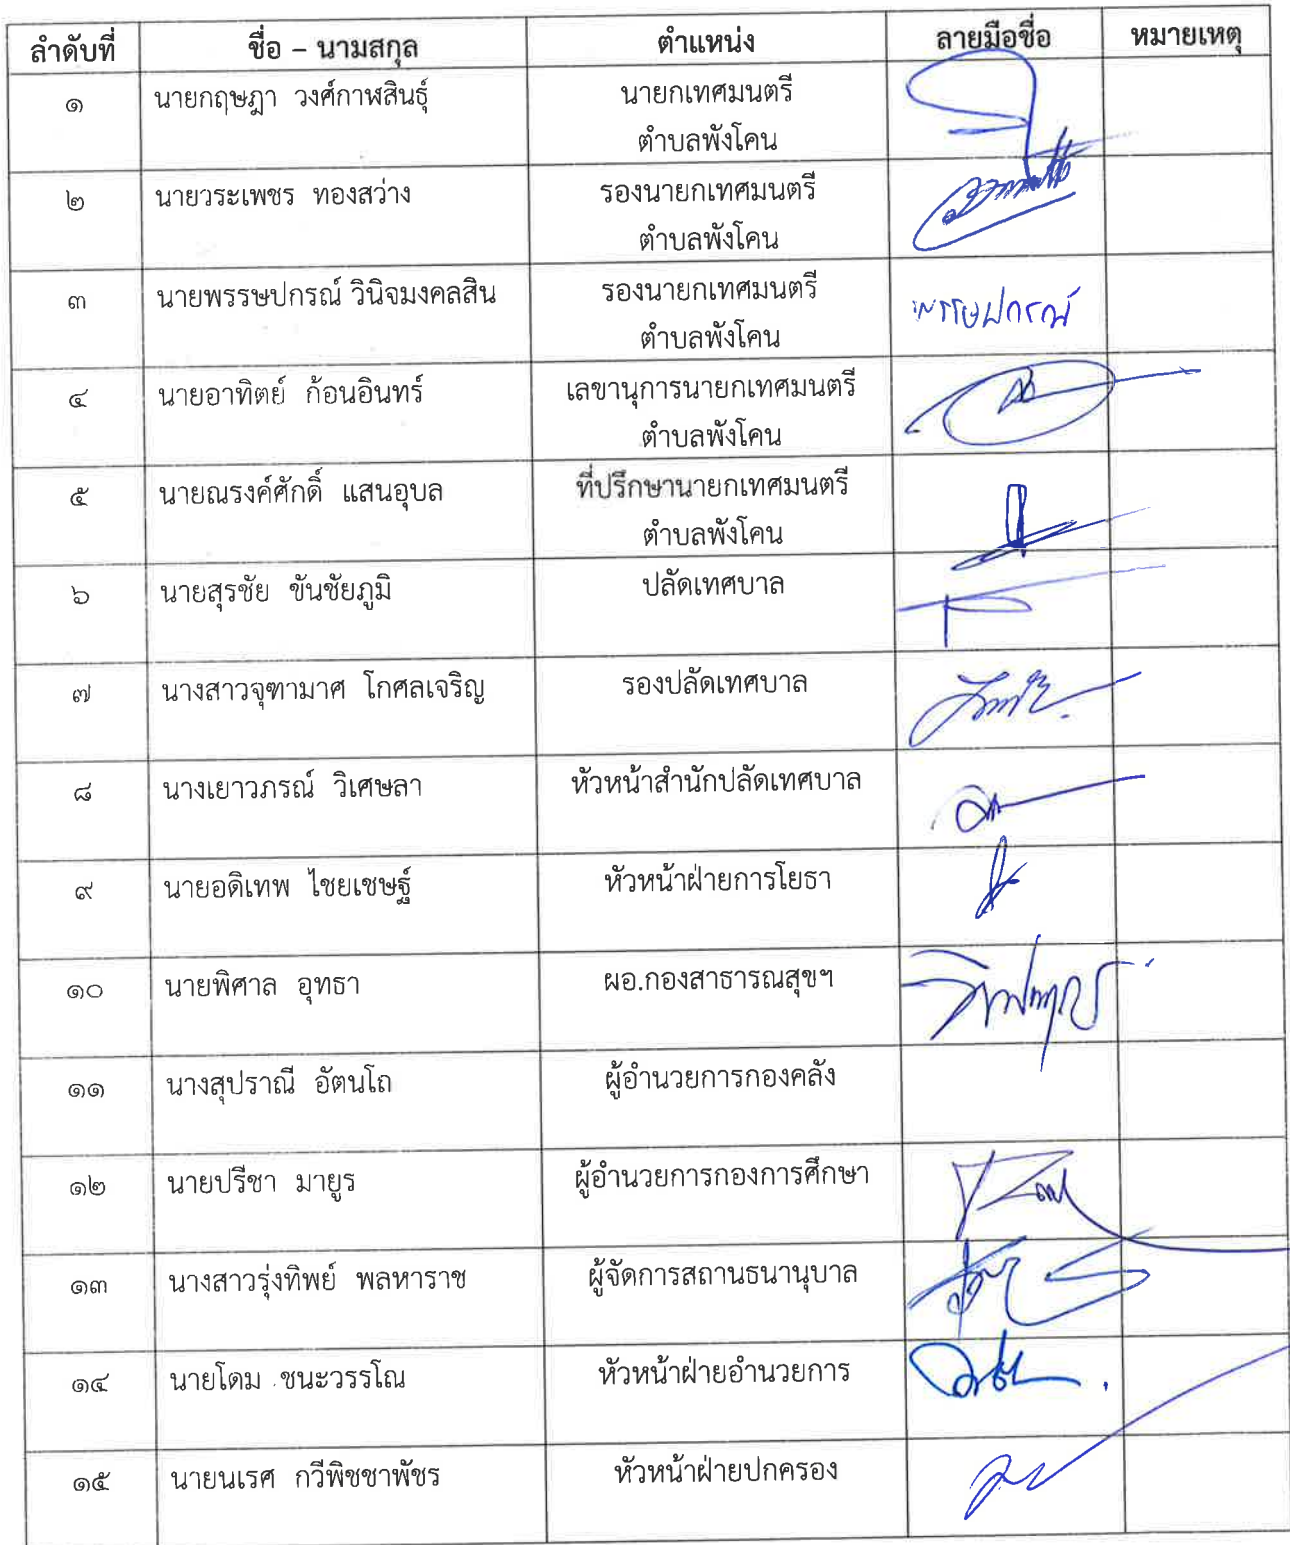 ลำดับที่ ชื่อ – นามสกุล ตำแหน่ง ลายมือชื่อ หมายเหตุ
๑ นายกฤษฎา วงศ์กาฬสินธุ์ นายกเทศมนตรี
ตำบลพังโคน
๒ นายวระเพชร ทองสว่าง รองนายกเทศมนตรี
ตำบลพังโคน
๓ นายพรรษปกรณ์ วินิจมงคลสิน รองนายกเทศมนตรี พรรษปกรณ์
ตำบลพังโคน
๔ นายอาทิตย์ ก้อนอินทร์ เลขานุการนายกเทศมนตรี
ตำบลพังโคน
๕ นายณรงค์ศักดิ์ แสนอุบล ที่ปรึกษานายกเทศมนตรี
ตำบลพังโคน
๖ นายสุรชัย ขันชัยภูมิ ปลัดเทศบาล
๗ นางสาวจุฑามาศ โกศลเจริญ รองปลัดเทศบาล
๘ นางเยาวภรณ์ วิเศษลา หัวหน้าสำนักปลัดเทศบาล
๙ นายอดิเทพ ไชยเชษฐ์ หัวหน้าฝ่ายการโยธา
๑๐ นายพิศาล อุทธา ผอ.กองสาธารณสุขฯ
๑๑ นางสุปราณี อัตนโถ ผู้อำนวยการกองคลัง
๑๒ นายปรีชา มายูร ผู้อำนวยการกองการศึกษา
๑๓ นางสาวรุ่งทิพย์ พลหาราช ผู้จัดการสถานธนานุบาล
๑๔ นายโดม ชนะวรรโณ หัวหน้าฝ่ายอำนวยการ
๑๕ นายนเรศ กวีพิชชาพัชร หัวหน้าฝ่ายปกครอง